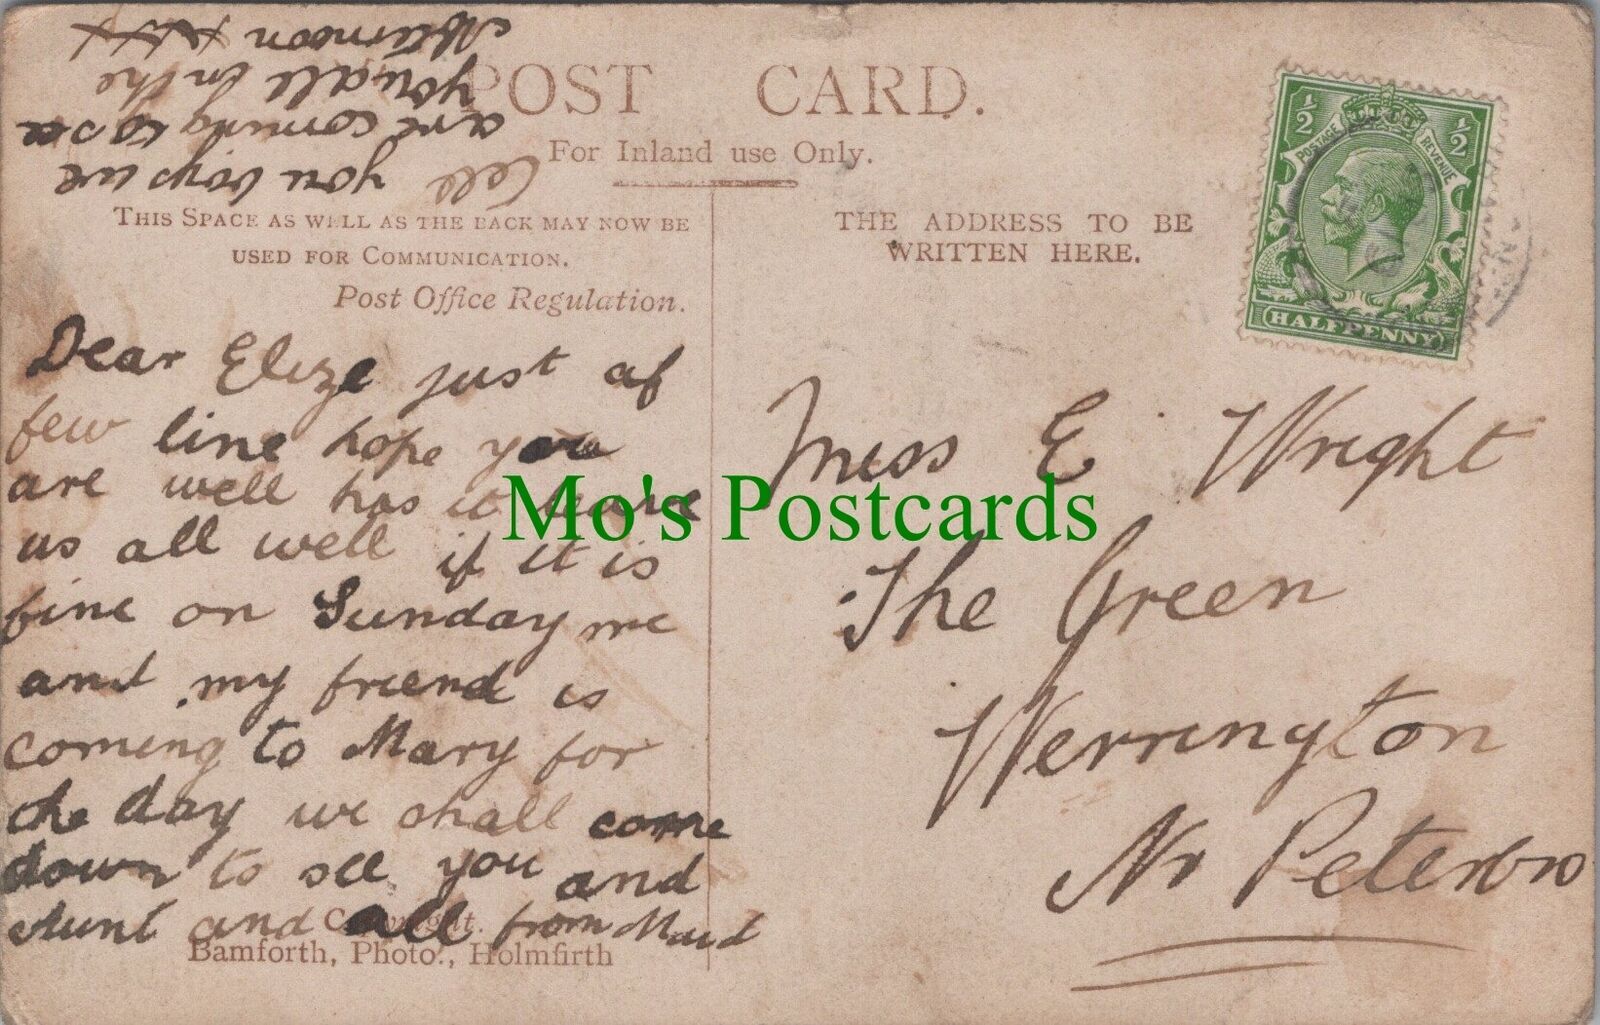 POST CARD.
For Inland use Only.
THIS SPACE AS WELL AS THE BACK MAY NOW BE
USED FOR COMMUNICATION.
Post Office Regulation.
THE ADDRESS TO BE
WRITTEN HERE.
1/2 1/2
POSTAGE REVENUE
HALFPENNY
Dear Elize just af
few line hope you
are well has it leave
us all well if it is
fine on Sunday me
and my friend is
coming to Mary for
the day we shall come
down to see you and
Aunt and all from Maud
tell you boys we
are coming to see
you all in the
Afternoon xxx
Miss E Wright
The Green
Werrington
Nr Peterbro
Copyright.
Bamforth, Photo., Holmfirth
Mo's Postcards